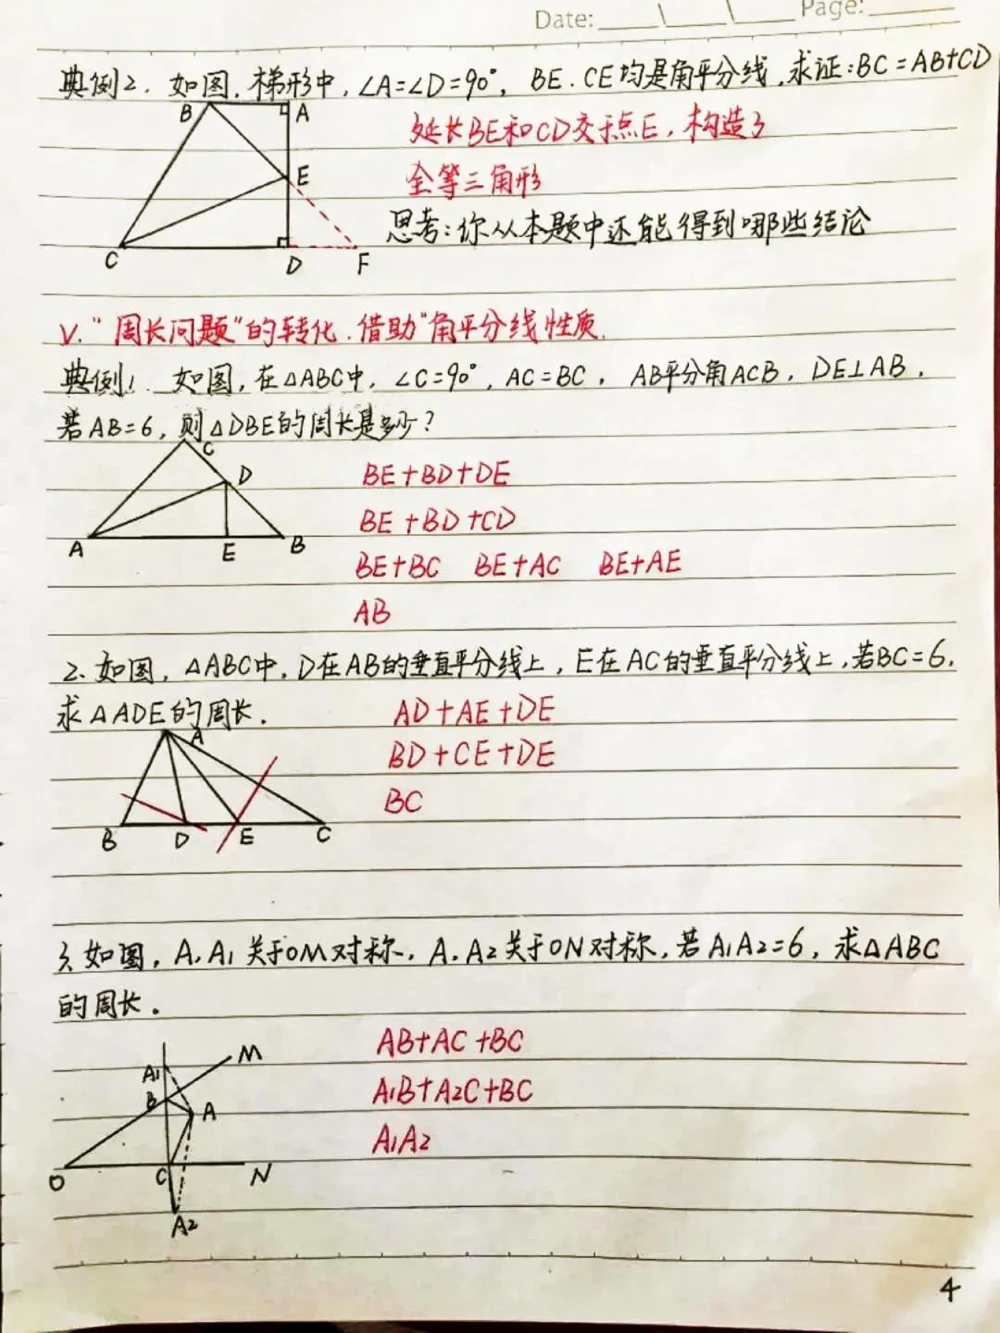 Date: Page:
典例2. 如图, 梯形中, ∠A=∠D=90°, BE. CE均是角平分线, 求证: BC=AB+CD
B A
延长BE和CD交于点E, 构造了
E
全等三角形
思考: 你从本题中还能得到哪些结论
C D F
V. "周长问题"的转化. 借助"角平分线性质.
典例1. 如图, 在△ABC中, ∠C=90°, AC=BC, AB平分角ACB, DE⊥AB,
若AB=6, 则△DBE的周长是多少?
C
D
BE+BD+DE
BE+BD+CD
A E B
BE+BC BE+AC BE+AE
AB
2. 如图, △ABC中, D在AB的垂直平分线上, E在AC的垂直平分线上, 若BC=6,
求△ADE的周长.
AD+AE+DE
A
BD+CE+DE
BC
B D E C
3. 如图, A. A1关于OM对称, A. A2关于ON对称, 若A1A2=6, 求△ABC
的周长.
AB+AC+BC
M
A1
A1B+A2C+BC
B
A
A1A2
O C N
A2
4